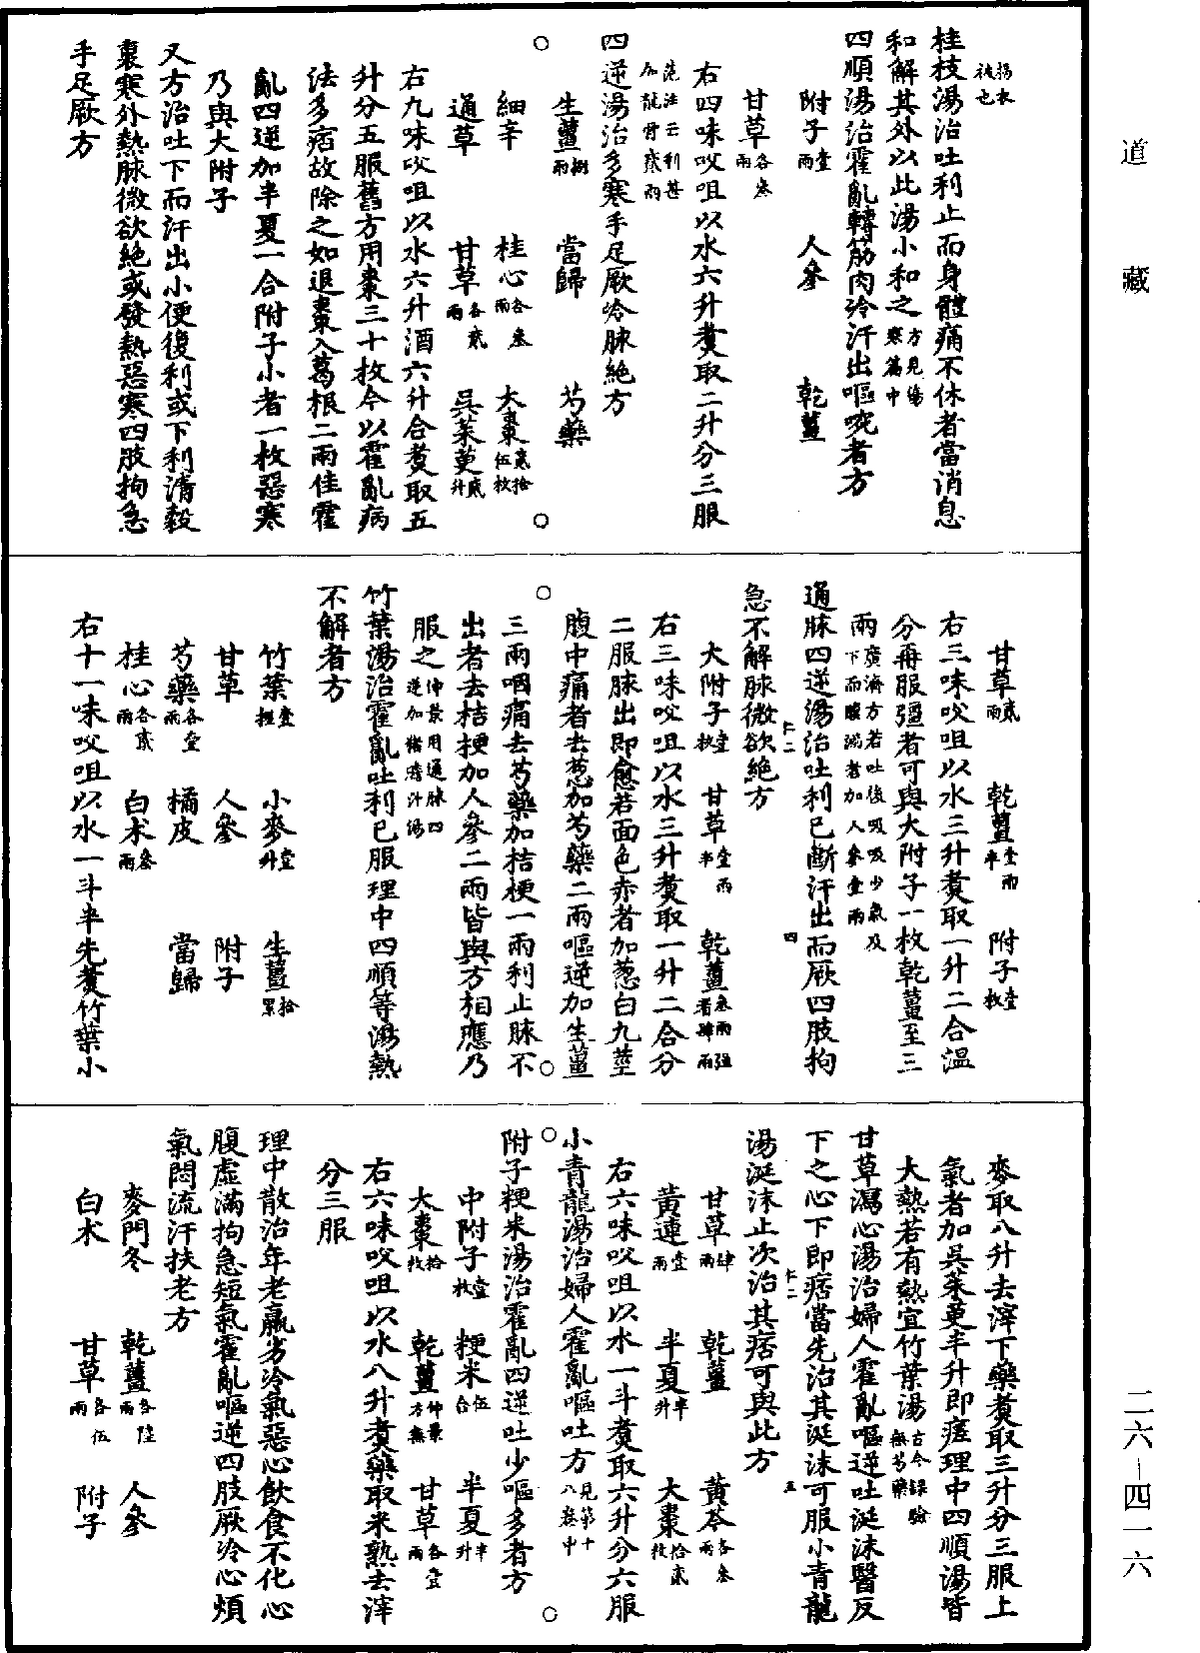 道藏
揭衣
被也
桂枝湯治吐利止而身體痛不休者當消息
和解其外以此湯小和之方見傷寒篇中
四順湯治霍亂轉筋肉冷汗出嘔啘者方
附子壹兩 人參 乾薑
甘草各叁兩
右四味㕮咀以水六升煑取二升分三服
范汪云利甚加龍骨貳兩
四逆湯治多寒手足厥冷脉絕方
生薑捌兩 當歸 芍藥
細辛 桂心各叁兩 大棗貳拾伍枚
通草 甘草各貳兩 吳茱萸貳升
右九味㕮咀以水六升酒六升合煑取五
升分五服舊方用棗三十枚今以霍亂病
法多痞故除之如退棗入葛根二兩佳霍
亂四逆加半夏一合附子小者一枚惡寒
乃與大附子
又方治吐下而汗出小便復利或下利清穀
裏寒外熱脉微欲絕或發熱惡寒四肢拘急
手足厥方
甘草貳兩 乾薑壹兩半 附子壹枚
右三味㕮咀以水三升煑取一升二合温
分再服彊者可與大附子一枚乾薑至三
兩廣濟方若吐後吸吸少氣及下而腹滿者加人參壹兩
通脉四逆湯治吐利已斷汗出而厥四肢拘
急不解脉微欲絕方
卞二 四
大附子壹枚 甘草壹兩半 乾薑叁兩强者肆兩
右三味㕮咀以水三升煑取一升二合分
二服脉出即愈若面色赤者加葱白九莖
腹中痛者去葱加芍藥二兩嘔逆加生薑
三兩咽痛去芍藥加桔梗一兩利止脉不
出者去桔梗加人參二兩皆與方相應乃
服之仲景用通脉四逆加猪膽汁湯
竹葉湯治霍亂吐利已服理中四順等湯熱
不解者方
竹葉壹握 小麥壹升 生薑拾累
甘草 人參 附子
芍藥各壹兩 橘皮 當歸
桂心各貳兩 白术叁兩
右十一味㕮咀以水一斗半先煑竹葉小
麥取八升去滓下藥煑取三升分三服上
氣者加吳茱萸半升即瘥理中四順湯皆
大熱若有熱宜竹葉湯古今録驗無芍藥
甘草瀉心湯治婦人霍亂嘔逆吐涎沫醫反
下之心下即痞當先治其涎沫可服小青龍
湯涎沫止次治其痞可與此方
卞二 五
甘草肆兩 乾薑 黃芩各叁兩
黃連壹兩 半夏半升 大棗拾貳枚
右六味㕮咀以水一斗煑取六升分六服
小青龍湯治婦人霍亂嘔吐方見第十八卷中
附子粳米湯治霍亂四逆吐少嘔多者方
中附子壹枚 粳米伍合 半夏半升
大棗拾枚 乾薑仲景方無 甘草各壹兩
右六味㕮咀以水八升煑藥取米熟去滓
分三服
理中散治年老羸劣冷氣惡心飲食不化心
腹虛滿拘急短氣霍亂嘔逆四肢厥冷心煩
氣悶流汗扶老方
麥門冬 乾薑各陸兩 人參
白术 甘草各伍兩 附子
二六－四一六